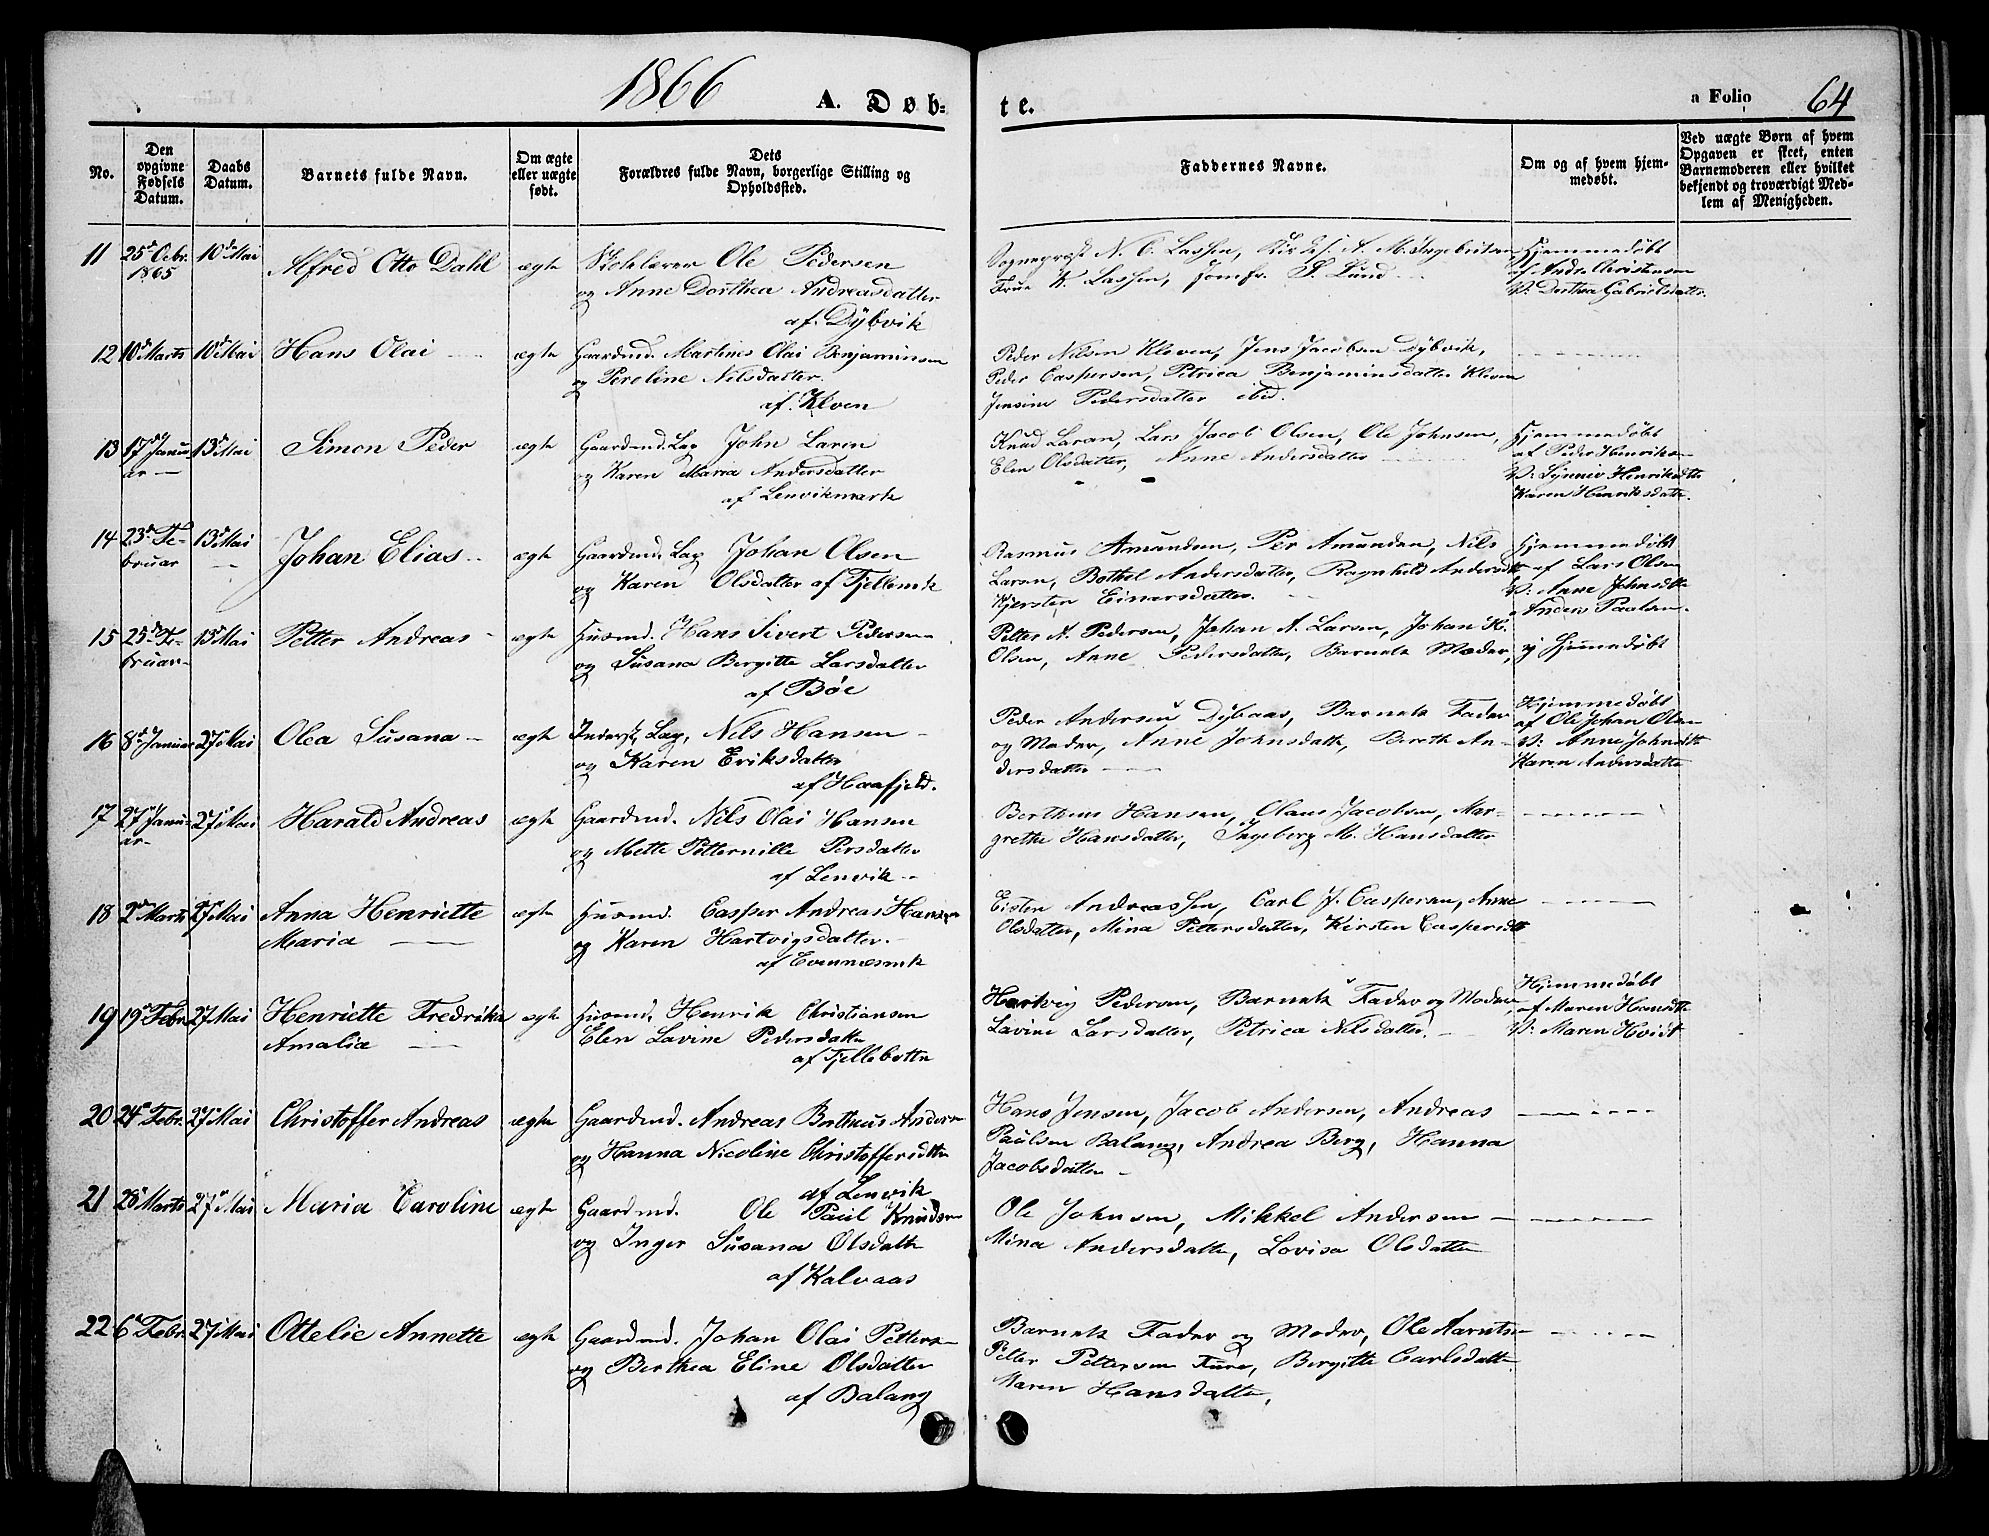 1866 A. Døb- te. a Folio 64
No.
Den opgivne Fødsels Datum.
Daabs Datum.
Barnets fulde Navn.
Om ægte eller uægte født.
Dets Forældres fulde Navn, borgerlige Stilling og Opholdssted.
Faddernes Navne.
Om og af hvem hjemmedøbt.
Ved uægte Børn af hvem Opgaven er skeet, enten Barnemoderen eller hvilket bekjendt og troværdigt Medlem af Menigheden.
11 25de Octbr. 1865 10de Mai Alfred Otto Dahl ægte Skolelærer Ole Pedersen
og Anne Dorthea Andreasdatter
af Dybvik
Sognepræst N. C. Lassen, A. M. Ingebritsen
Frue K. Lassen, Jomfr. S. Lund
Hjemmedøbt
af Andr. Christensen
V: Dorthea Gabrielsdatter.
12 10de Marts 10de Mai Hans Olai ægte Gaardmd. Martines Olai Benjaminsen
og Pereline Nilsdatter.
af Kloen
Peder Nilsen Kloven, Jens Jacobsen Dybvik,
Peder Caspersen, Petrica Benjaminsdatter Kloven
Jensine Pedersdatter ibid.
13 17de Januar 13de Mai Simon Peder ægte Gaardmd. Lap John Larsn
og Karen Maria Andersdatter
af Lenvikmark
Knud Laran, Lars Jacob Olsen, Ole Johnsen,
Elen Olsdatter, Anne Andersdatter
Hjemmedøbt
af Peder Henriksen
V: Synniv Henriksdttr
Karen Henriksdatter.
14 23de Februar 13de Mai Johan Elias ægte Gaardmd. Lap Johan Olsen
og Karen Olsdatter af Fjellemk
Rasmus Amundsen, Per Amundsen, Nils
Laran, Bothel Andersdatter, Ragnhild Andersdtt
Kjersten Einarsdatter.
Hjemmedøbt
af Lars Olsen
V: Anne Johnsdttr
Anders Paulsen.
15 25de Februar 13de Mai Petter Andreas ægte Husmd. Hans Sivert Pedersen
og Susana Bergitte Larsdatter
af Bøe
Petter A. Pedersen, Johan A. Larsen, Johan K.
Olsen, Anne Pedersdatter, Barnets Moder,
ej Hjemmedøbt
16 8de Januar 27de Mai Olea Susana ægte Inderst, Lap, Nils Hansen
og Karen Eriksdatter
af Haafjeld.
Peder Andersen Dybaas, Barnets Fader
og Moder, Anne Johnsdatter, Bereth An-
dersdatter
Hjemmedøbt
af Ole Johan Olsen
V: Anne Johnsdttr
Karen Andersdatter
17 27de Januar 27de Mai Harald Andreas ægte Gaardmd. Nils Olai Hansen
og Mette Petternille Persdatter
af Lenvik
Berthens Hansen, Olaus Jacobsen, Mar-
grethe Hansdatter, Ingeborg M. Hansdatter
18 2den Marts 27de Mai Anna Henriette
Maria
ægte Husmd. Casper Andreas Hansen
og Karen Hartvigsdatter.
af Evennæsmk
Eisten Andreassen, Carl J. Caspersen, Anne
Olsdatter, Mina Pettersdatter, Kirsten Caspersdtt
19 19de Febr. 27de Mai Henriette Fredrikke
Amalia
ægte Husmd. Henrik Christiansen
Elen Lavine Pedersdatter
af Fjellebotten
Hartvig Pedersen, Barnets Fader og Moder,
Lavine Larsdatter, Petrica Nilsdatter.
Hjemmedøbt
af Maren Hansdttr
V: Maren Hvidt
20 24de Febr. 27de Mai Christoffer Andreas ægte Gaardmd. Andreas Bertheus Andersen
og Hanna Nicoline Christoffersdttr
af Lenvik
Hans Jensen, Jacob Andersen, Andreas
Paulsen Balang, Andrea Berg, Hanna
Jacobsdatter
21 28de Marts 27de Mai Maria Caroline ægte Gaardmd. Ole Paul Knudsen
og Inger Susana Olsdatter
af Kalvaas
Ole Johnsen, Mikkel Andersen
Mina Andersdatter, Lovisa Olsdatter
22 6te Febr. 27de Mai Ottelie Annette ægte Gaardmd. Johan Olai Pettersen
og Berthea Eline Olsdatter
af Balang
Barnets Fader og Moder, Ole Aarntsen
Petter Pettersen Fure, Bergitte Carlsdatter
Maren Hansdatter,